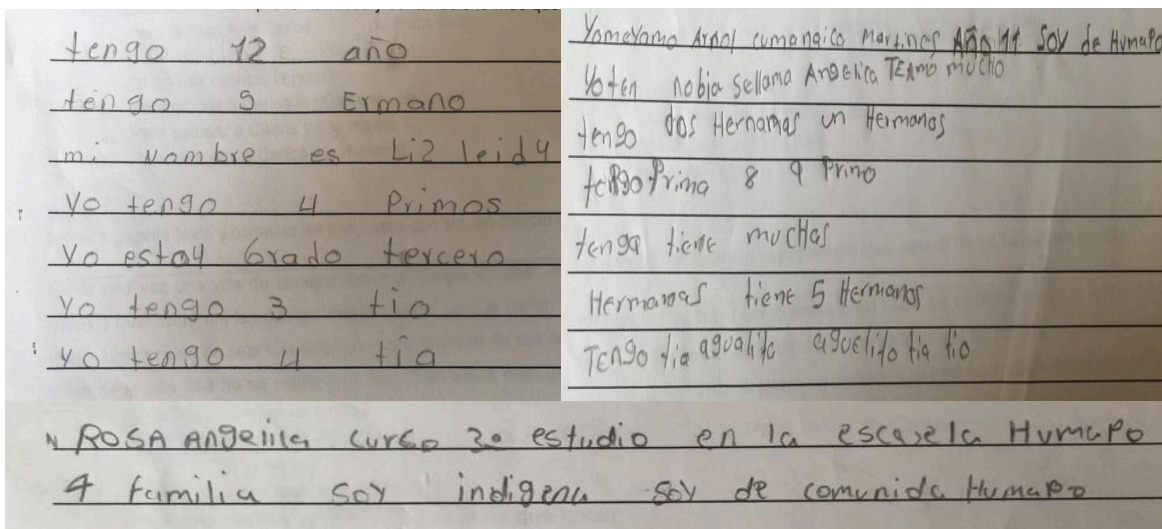 tengo 12 año
tengo 5 Ermano
mi Nombre es Liz leidy
Yo tengo 4 Primos
Yo estoy Grado tercero
Yo tengo 3 tio
yo tengo 4 tia
Yomeyamo Arnol cumanaico martines Año 11 Soy de Humapo
Yo ten nobia sellama Angelica TEAmo mucho
tengo dos Hernamas un Hermanos
tengo Prima 8 9 Primo
tenga tiene muchas
Hermanas tiene 5 Hermanos
Tengo tia agualito aguelito tia tio
ROSA Angelica curso 3o estudio en la escasela Humapo
4 familia soy indigena soy de comunida Humapo